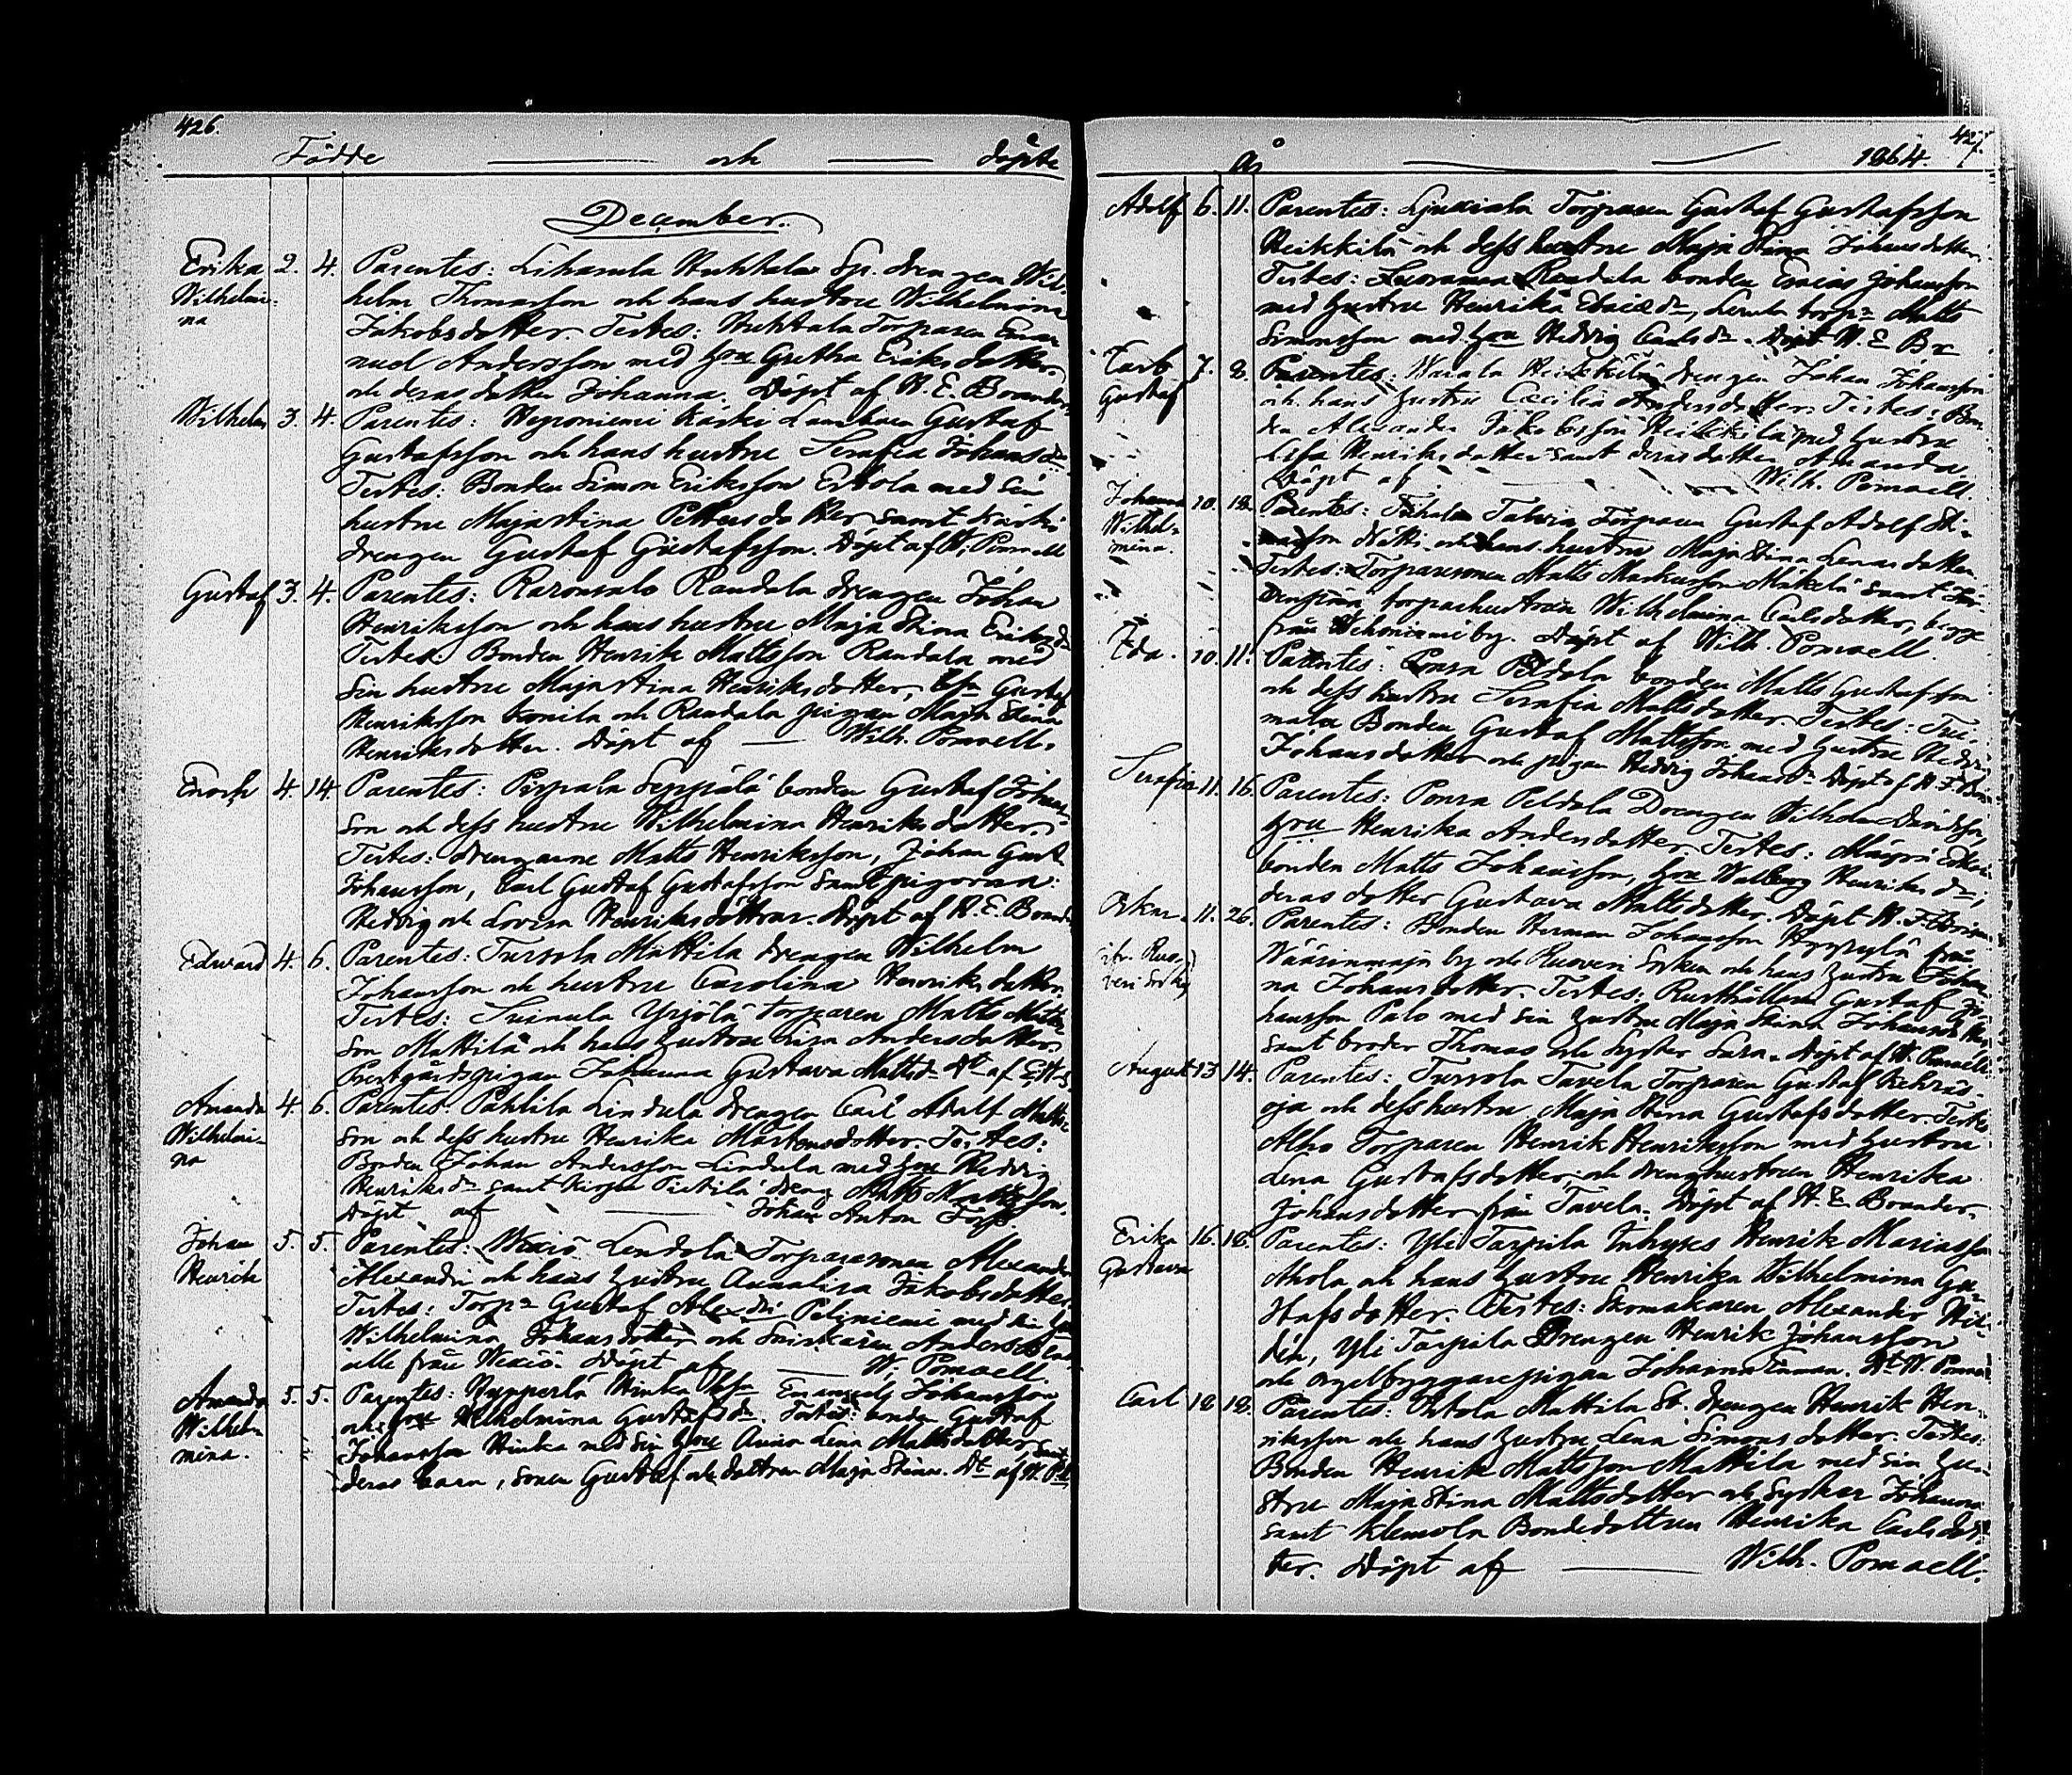 426.
Födde — och — döpte
December.
Erika Wilhelmi-
na
2. 4. Parentes: Lihasula Huhtala Sp. drengen Wil-
helm Thomasson och hans hustru Wilhelmina
Jakobsdotter. Testes: Huhtala Torparen Ema-
nuel Andersson med hru Gretha Eriksdotter
och deras dotter Johanna. Döpt af H. E. Brander.
Wilhelm 3. 4. Parentes: Heponiemi Kärki Gustaf
Gustafsson och hans hustru Serafia Johansdr
Testes: Bonden Simon Eriksson Erkola med sin
hustru Majastina Pettersdotter samt Kärki
drengen Gustaf Gustafsson. Döpt af W. Ponvell
Gustaf 3. 4. Parentes: Karonsalo Randala drengen Johan
Henriksson och hans hustru Maja Stina Eriksdr
Testes: Bonden Henrik Mattsson Randala med
sin hustru Majastina Henriksdotter, Gustaf
Henriksson och Randala pigan Maja Stina
Henriksdotter. Döpt af — Wilh. Ponvell.
Enoch 4. 14. Parentes: Pispala Seppälä bonden Gustaf Johans-
son och dess hustru Wilhelmina Henriksdotter.
Testes: drengarne Matts Henriksson, Johan Gust.
Johansson, Carl Gustaf Gustafsson samt pigorna:
Hedvig och Lovisa Henriksdöttrar. Döpt af H. E. Brander
Edward 4. 6. Parentes: Tursola Mattila drengen Wilhelm
Johansson och hustru Carolina Henriksdotter.
Testes: Suinula Yrjölä torparen Matts Matts-
son Mattila och hans hustru Lisa Andersdotter,
Prestgårdspigan Johanna Gustava Mattsdr Dt af
Amanda
Wilhelmi-
na
4. 6. Parentes: Pahlila Lindula drengen Carl Adolf Matts-
son och dess hustru Henrika Mårtensdotter. Testes:
Bonden Johan Andersson Lindula med hru Hedvig
Henriksdr samt Pietilä dreng Matts Mattsson.
Döpt af — Johan Anton Törs.
Johan
Henrik
5. 5. Parentes: Wexiö Lendola Torparesonen Alexander
Alexandri och hans hustru Annalisa Jakobsdotter.
Testes: Torpn Gustaf Alexdri Peltoniemi med sin hru
Wilhelmina Johansdotter och Anders
alle från Wexiö. Döpt af — W. Ponvell.
Amanda
Wilhel-
mina.
5. 5. Parentes: Hypperlä Hinka Emanuel Johansson
och hru Wilhelmina Gustafsdr. Testes: bonden Gustaf
Johansson Hinka med sin hru Anna Lena Mattsdotter, samt
deras barn, sonen Gustaf och dottren Maja Stina. Dt af W. P.ll
427.
år — 1864.
Adolf 6. 11. Parentes: Ljuxiala Torparen Gustaf Gustafsson
Heikkilä och dess hustru Maja Stina Johansdotter.
Testes: Randala bonden Johansson
med hustru Henrika torpn Matts
Simonsson med hru Hedvig Carlsdr. Döpt H E Br
Carl
Gustaf
7. 8. Parentes: Watiala Heikkilä drengen Johan Johansson
och hans hustru Cæcilia Andersdotter. Testes: Bon-
den Alexander Jakobsson Heikkilä med hustru
Lisa Henriksdotter samt deras dotter Amanda
Döpt af — Wilh. Ponvell.
Johanna
Wilhel-
mina.
10. 18. Parentes: Tohala Talvia Torparen Gustaf Adolf
och hans hustru Maja Stina Lenasdotter.
Testes: Torparesonen Matts Markusson Mäkelä samt
torparehustrun Wilhelmina Carlsdotter, begge
från Wehoniemi by. Döpt af Wilh. Ponvell.
Eda. 10. 11. Parentes: Ponsa Peldola bonden Matts Gustafsson
och dess hustru Serafia Mattsdotter. Testes:
Bonden Gustaf Mattsson med hustru Hedvig
Johansdotter och pigan Hedvig Johansdr. Döpt af H. E. Bra
Serafia 11. 16. Parentes: Ponsa Peldola Drengen Wilhelm Davidsson,
hru Henrika Andersdotter. Testes:
bonden Matts Johansson, hru Walborg Henriksdr;
deras dotter Gustava Mattsdotter. Döpt H. E. Bran.
Oskar. 11. 26. Parentes: Bonden Herman Johansson Hyyrylä från
ifr. Ruo-
vesi Sockn
Wäärinmaja by och Ruovesi Socken och hans hustru Johan-
na Johansdotter. Testes: Rusthållaren Gustaf Jo-
hansson Palo med sin hustru Maja Stina Johansdotter
samt broder Thomas och Syster Sara. Döpt af W. Ponvell.
August 13. 14. Parentes: Tursola Tavela Torparen Gustaf
oja och dess hustru Maja Stina Gustafsdotter. Testes
Alho Torparen Henrik Henriksson med hustru
Lena Gustafsdotter; och drenghustrun Henrika
Johansdotter från Tavela. Döpt af H. E. Brander.
Erika
Gustava
16. 18. Parentes: Yli Tarpila Inhyses Henrik Mariasson
Ahola och hans hustru Henrika Wilhelmina Gu-
stafsdotter. Testes: Skomakaren Alexander Wil-
dén, Yli Tarpila Drengen Henrik Johansson
och orgelbyggarepigan Johanna Enman. Dt W. Ponvell
Carl 18 18. Parentes: Uhtola Mattila St. drengen Henrik Hen-
riksson och hans hustru Lena Simonsdotter. Testes:
Bonden Henrik Mattsson Mattila med sin hu-
stru Maja Stina Mattsdotter och Syster Johanna
samt Klemola Bondedottren Henrika Carlsdot-
ter. Döpt af — Wilh. Ponvell.